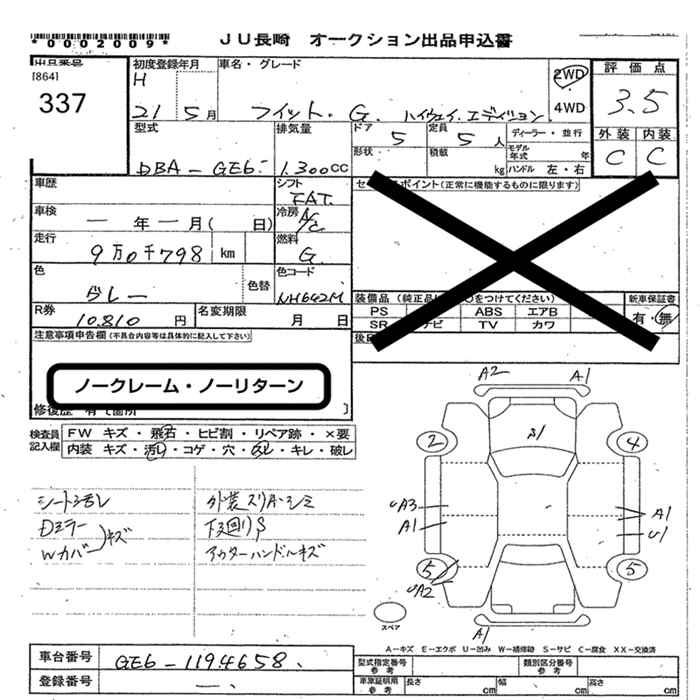 *0002009*
JU長崎 オークション出品申込書
出品番号
[864]
337
初度登録年月
H
21 5月
車名・グレード
フィット. G. ハイウェイ.エディション
2WD
4WD
評価点
3.5
外装 内装
C C
型式
DBA-GE6
排気量
1.300CC
ドア
5
定員
5人
ディーラー・並行
形状
積載
kg
モデル年式 年
ハンドル 左・右
車歴
シフト
FAT.
セールスポイント(正常に機能するものに限ります)
車検
ー 年 ー 月( 日)
冷房
A/C
走行
9万0千798 km
燃料
G.
色
グレー
色替
色コード
NH642M
装備品(純正品に○をつけてください)
新車保証書
有・無
PS ABS エアB
SR ナビ TV カワ
R券
10.810 円
名変期限
月 日
注意事項申告欄(不具合内容等は具体的に記入して下さい)
ノークレーム・ノーリターン
修復歴 有 て箇所 〕
検査員
記入欄
FW キズ・飛石・ヒビ割・リペア跡・×要
内装 キズ・汚れ・コゲ・穴・スレ・キレ・破レ
シート汚レ
Dミラー
Wカバー〉キズ
外装スリキズ・シミ
下廻りS
アウターハンドルキズ
A2 A1
S1
2 4
UA3
A1
A1
U1
5 5
UA2
A1
スペア
A-キズ E-エクボ U-凹み W-補修跡 S-サビ C-腐食 XX-交換済
車台番号
GE6-1194658
登録番号
ー.
型式指定番号
参考
類別区分番号
参考
車庫証明用
参考
長さ cm
幅 cm
高さ cm